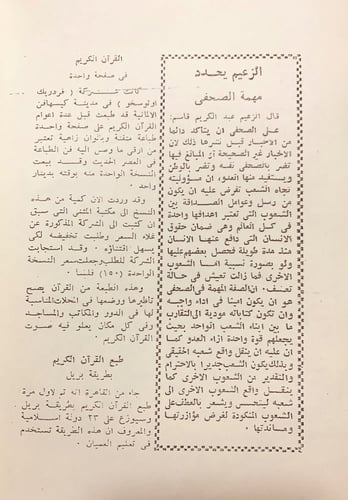 الزعيم يحدد
مهمة الصحفي
قال الزعيم عبد الكريم قاسم:
على الصحفي ان يتأكد دائما
من الاخبار قبل نشرها ذلك لان
الاخبار غير الصحيحة او المبالغ فيها
تضر بالصحفي نفسه وتضر بالوطن
ويستفيد منها العدو، ان مسؤوليته
تجاه الشعب تفرض عليه ان يكون
من رسل وعوامل الصداقة بين
الشعوب التي تعتبر اهدافها واحدة
في كل العالم وهي ضمان حقوق
الانسان التي دافع عنها الانسان
منذ مدة طويلة فحصل بعضهم عليها
ولو بصورة نسبية اما الشعوب
الاخرى فما زالت تعيش في حالة
تعسف، ان الصفة المهمة في الصحفي
هو ان يكون امينا في اداء واجبه
وان تكون كتاباته مودية الى التقارب
ما بين ابناء الشعب الواحد بحيث
يجعلهم قوة واحدة ازاء العدو كما
ان عليه ان ينقل واقع شعبه الحقيقي
وبذلك يكون الشعب جديرا بالاحترام
والتقدير من الشعوب الاخرى كما
ينقل واقع الشعوب الاخرى الى
شعبه ليتحسس ويشعر بالعطف على
الشعوب المنكودة لغرض مؤازرتها
ومساندتها.
القرآن الكريم
في صفحة واحدة
كانت شركة (فردريك
اوتوسخو) في مدينة كيسهافن
الالمانية قد طبعت قبل عدة اعوام
القرآن الكريم على صفحة واحدة
طباعة متقنة وبألوان زاهية تعتبر
من ارقى ما وصل اليه فن الطباعة
في العصر الحديث وقد بيعت
النسخة الواحدة منه بوقته بدينار
واحد.
وقد وردت الان كمية من هذه
النسخ الى مكتبة المثنى التي سبق
ان كتبت الى الشركة المذكورة عن
غلاء السعر وطلبت تخفيضه لكي
يسهل اقتناؤه. وقد استجابت
الشركة للطلب وجعلت سعر النسخة
الواحدة (١٥٠) فلسا.
وهذه الطبعة من القرآن يصح
تأطيرها ووضعها في المحلات المناسبة
لها في الدور والمكاتب والمساجد
وفي كل مكان يعلو فيه صوت
القرآن الكريم.
طبع القرآن الكريم
بطريقة بريل
جاء من القاهرة انه تم لاول مرة
طبع القرآن الكريم بطريقة بريل
وسيوزع على ٢٣ دولة اسلامية
والمعروف ان هذه الطريقة تستخدم
في تعليم العميان.